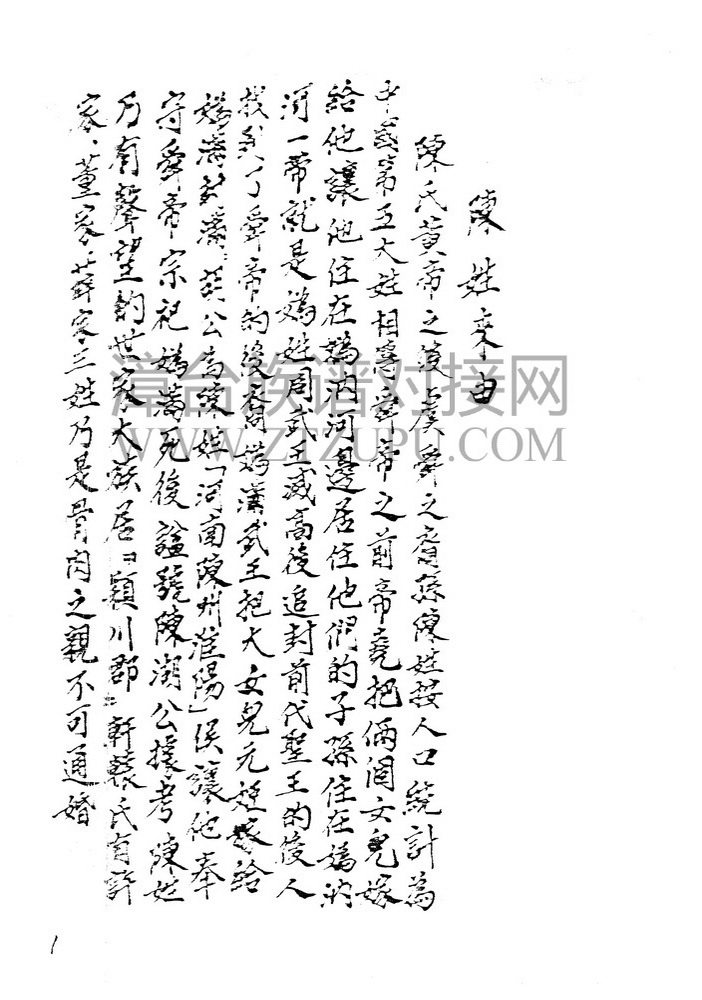 陳姓来由
陳氏黄帝之後虞舜之裔孫陳姓按人口統計為
中國第五大姓相傳舜帝之前帝堯把倆個女兒嫁
給他讓他住在媯汭河邊居住他們的子孫住在媯汭
河一帶就是媯姓周武王滅商後追封前代聖王的後人
找到了舜帝的後裔媯滿武王把大女兒元姬嫁給
媯滿封滿公為陳姓「河南陳州淮陽」侯讓他奉
守舜帝宗祀媯滿死後諡號陳湖公據考陳姓
乃有聲望的世家大族居『穎川郡』軒轅氏有許
家、董家、薛家三姓乃是骨肉之親不可通婚
1
漳台族谱对接网
WWW.ZTZUPU.COM